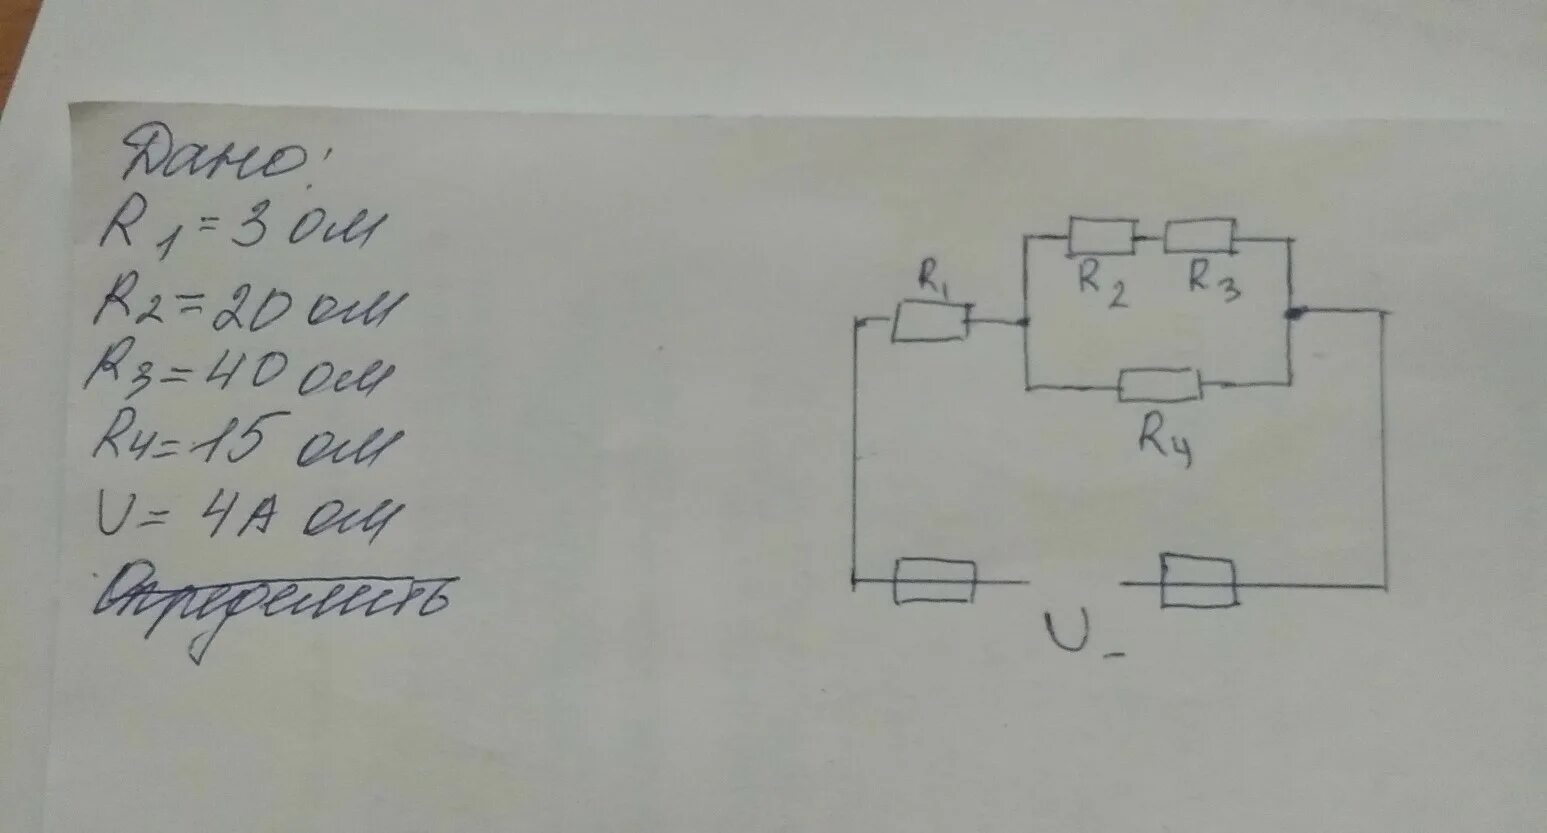 Дано:
R1=3 ом
R2=20 ом
R3=40 ом
R4=15 ом
U=4А ом
Определить
R1
R2 R3
R4
U-